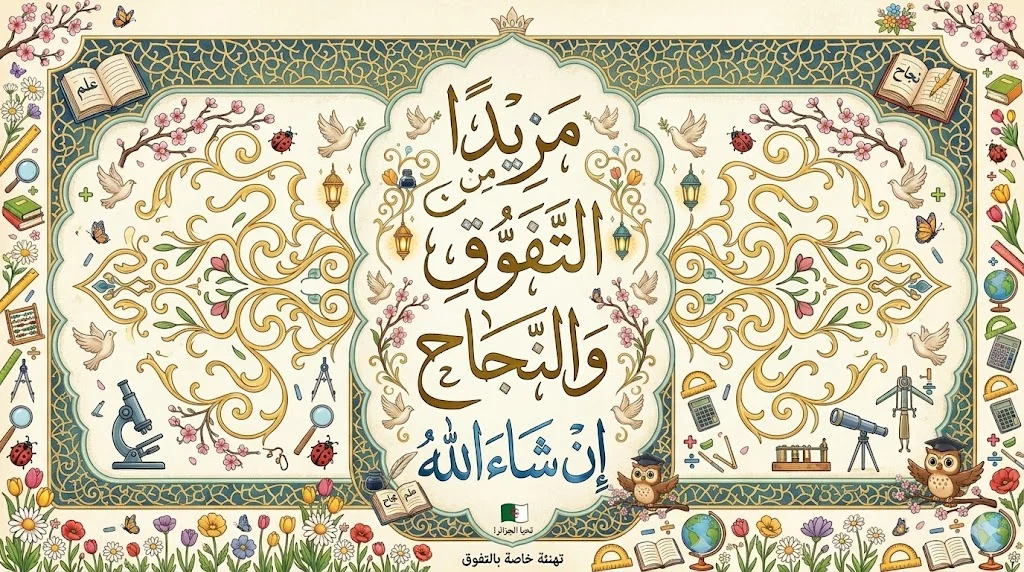 علم
نجاح
مَزِيْدًا
مِن
التَّفَوُّقِ
وَالنَّجَاح
إِنْ شَاءَ اللهُ
علم نجاح
تحيا الجزائر!
تهنئة خاصة بالتفوق